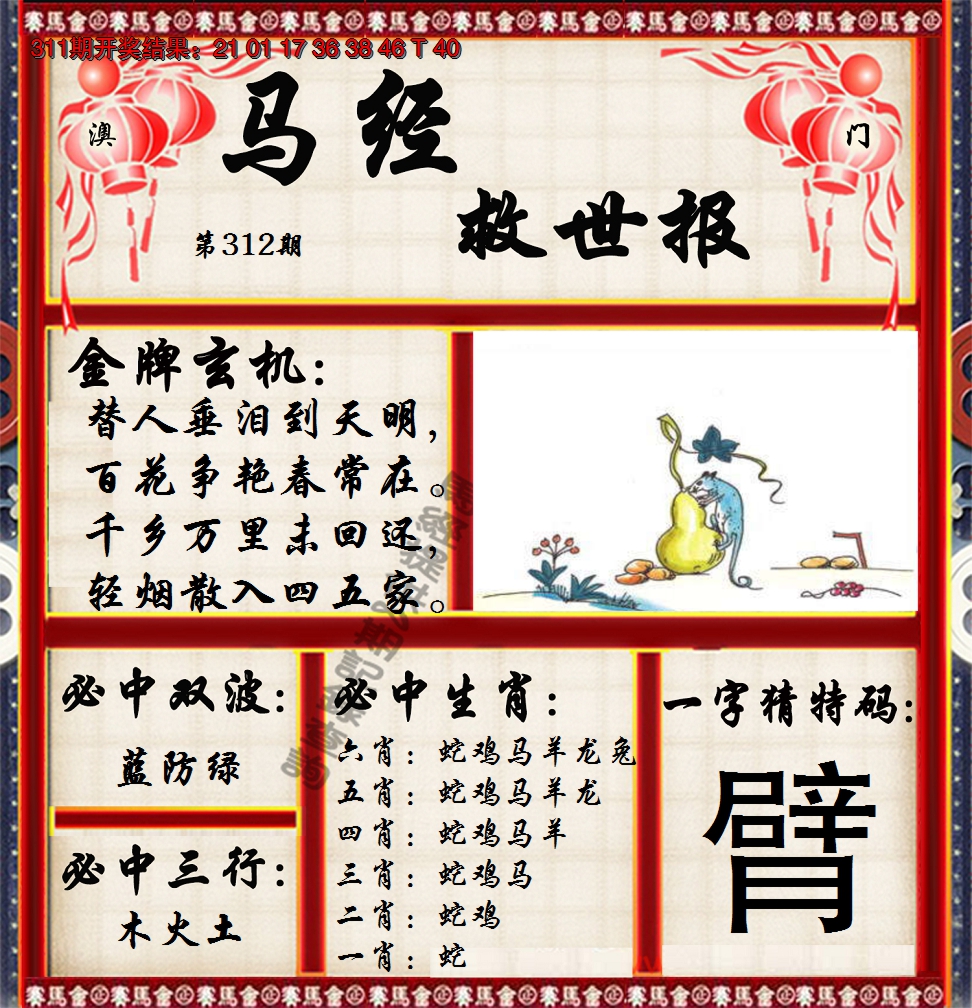 311期开奖结果：21 01 17 36 38 46 T 40
澳 门
马经
救世报
第312期
金牌玄机：
替人垂泪到天明，
百花争艳春常在。
千乡万里未回还，
轻烟散入四五家。
必中双波：
蓝防绿
必中三行：
木火土
必中生肖：
六肖：蛇鸡马羊龙兔
五肖：蛇鸡马羊龙
四肖：蛇鸡马羊
三肖：蛇鸡马
二肖：蛇鸡
一肖：蛇
一字猜特码：
臂